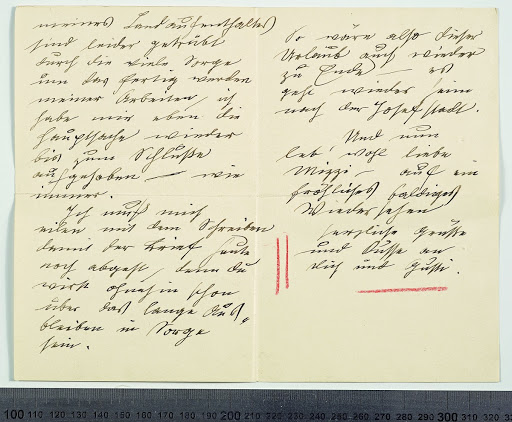 meines Landaufenthaltes
sind leider getrübt
durch die viele Sorge
um das fertig werden
meiner Arbeiten, ich
habe mir eben die
Hauptsache wieder
bis zum Schluße
aufgehoben – wie
immer.
Ich muß mich
eilen mit dem Schreiben
damit der Brief heute
noch abgeht, denn du
wirst ohnehin schon
über das lange Aus-
bleiben in Sorge
sein.
So wäre also dieser
Urlaub auch wieder
zu Ende – es
geht wieder heim
nach der Josefstadt.
Und nun
leb' wohl liebe
Mizzi – auf ein
fröhliches baldiges
Wiedersehen
herzliche Grüße
und Küsse an
dich und Gusti.
100 110 120 130 140 150 160 170 180 190 200 210 220 230 240 250 260 270 280 290 300 310